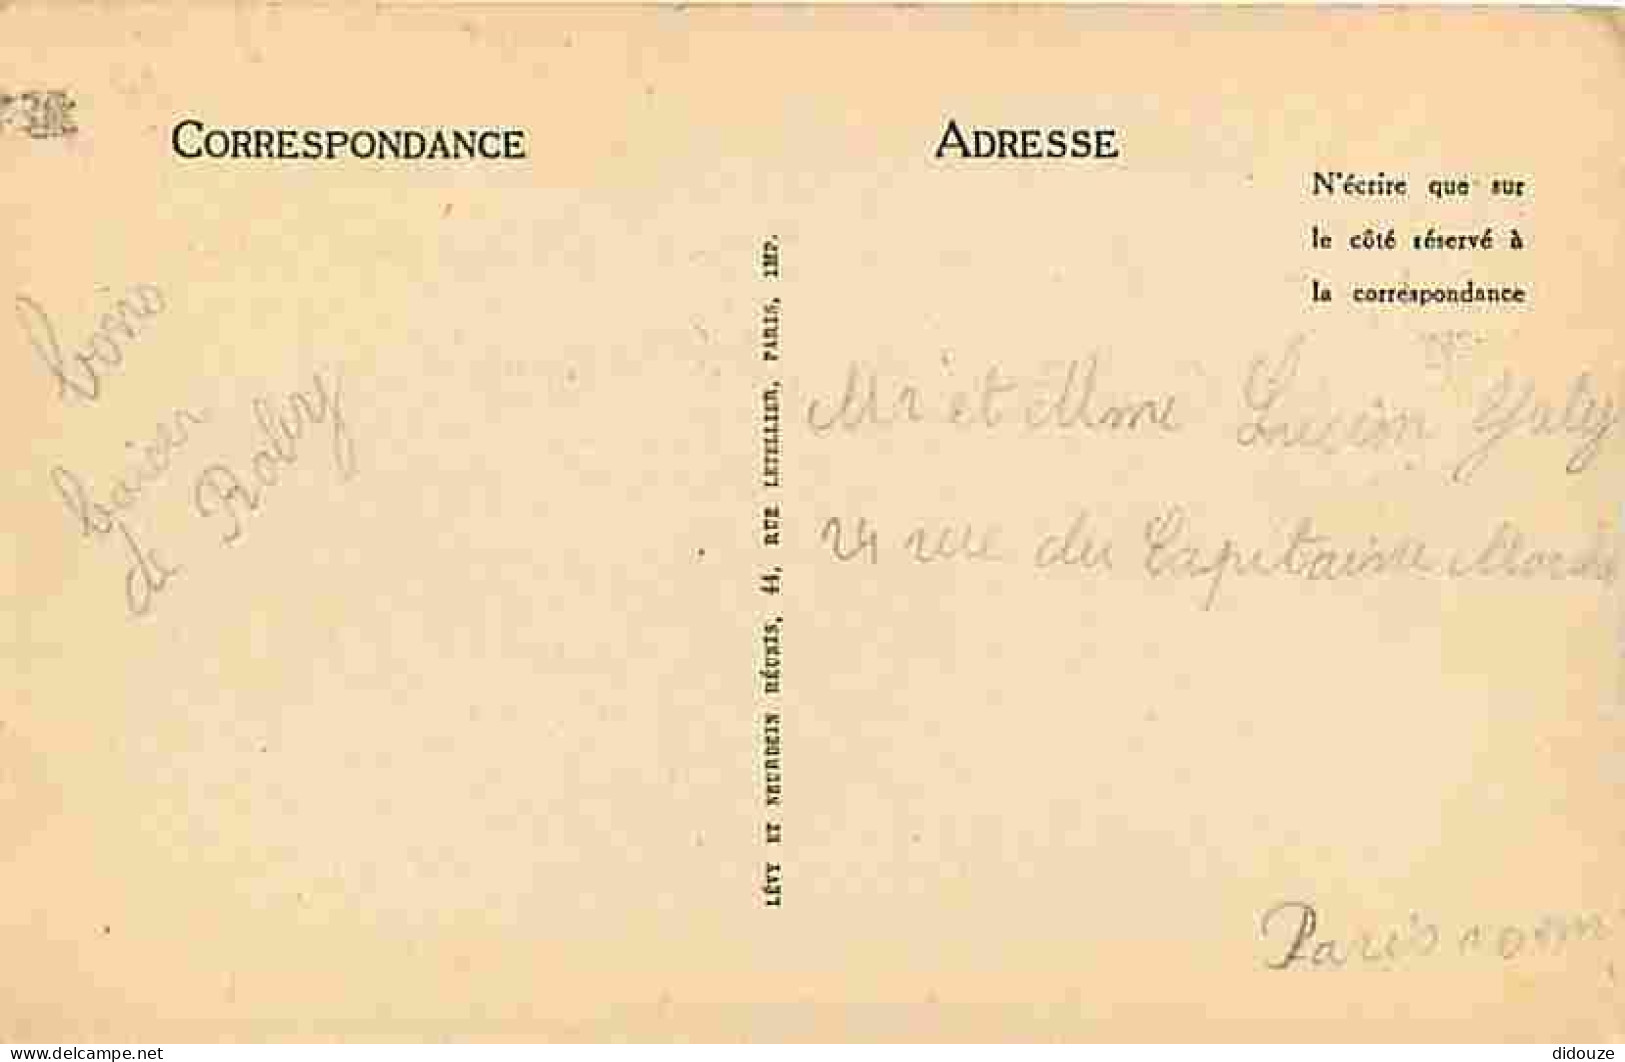 CORRESPONDANCE
ADRESSE
N'écrire que sur
le côté réservé à
la correspondance
bons
baiser
de Roby
LÉVY ET NEURDEIN RÉUNIS, 44, RUE LETELLIER, PARIS, IMP.
Mr et Mme Lucien
24 rue du Capitaine
Paris 10em
www.delcampe.net
didouze